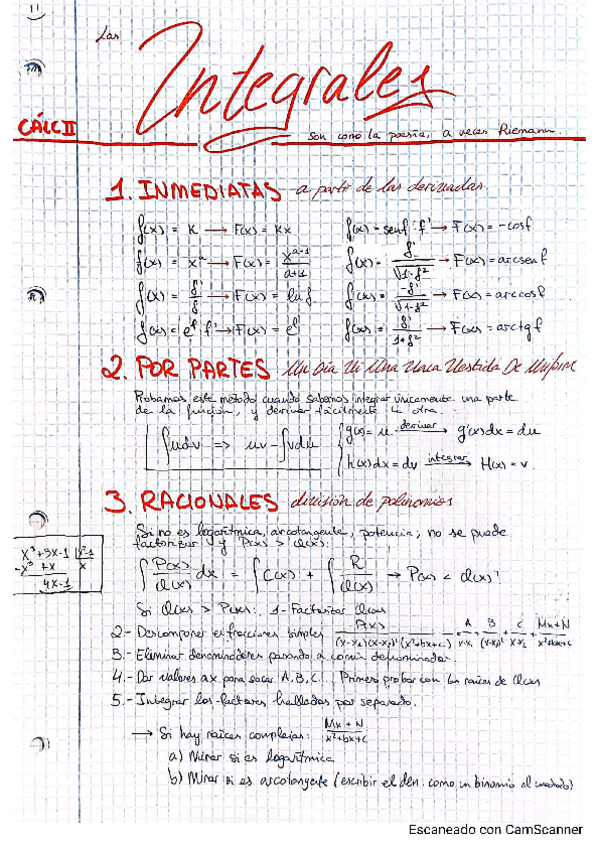 Las
Integrales
CÁLC II
son como la poesía, a veces Riemann.
1. INMEDIATAS a partir de las derivadas.
f(x) = K → F(x) = Kx
f(x) = senf · f' → F(x) = -cosf
f(x) = x^a → F(x) = x^(a+1)/(a+1)
f(x) = f'/√(1-f²) → F(x) = arcsenf
f(x) = f'/f → F(x) = ln f
f(x) = -f'/√(1-f²) → F(x) = arccosf
f(x) = e^f · f' → F(x) = e^f
f(x) = f'/(1+f²) → F(x) = arctgf
2. POR PARTES Un Día Vi Una Vaca Vestida De Uniforme
Probamos este método cuando sabemos integrar únicamente una parte
de la función, y derivar fácilmente la otra.
∫udv ⇒ uv - ∫vdu
g(x) = u derivar → g'(x)dx = du
h(x)dx = dv integrar → H(x) = v
3. RACIONALES división de polinomios
Si no es logarítmica, arcotangente, potencia; no se puede
factorizar y P(x) > Q(x):
x³+3x-1 x²-1
-x³+x x
4x-1
∫ P(x)/Q(x) dx = ∫ C(x) + ∫ R/Q(x) → P(x) < Q(x)!
Si Q(x) > P(x): 1- Factorizar Q(x)
2.- Descomponer en fracciones simples
A B C Mx+N
3.- Eliminar denominadores pasando a común denominador.
4.- Dar valores a x para sacar A, B, C... Primero probar con las raíces de Q(x)
5.- Integrar los factores hallados por separado.
→ Si hay raíces complejas: Mx+N/x²+bx+c
a) Mirar si es logarítmica
b) Mirar si es arcotangente (escribir el den. como un binomio al cuadrado)
Escaneado con CamScanner